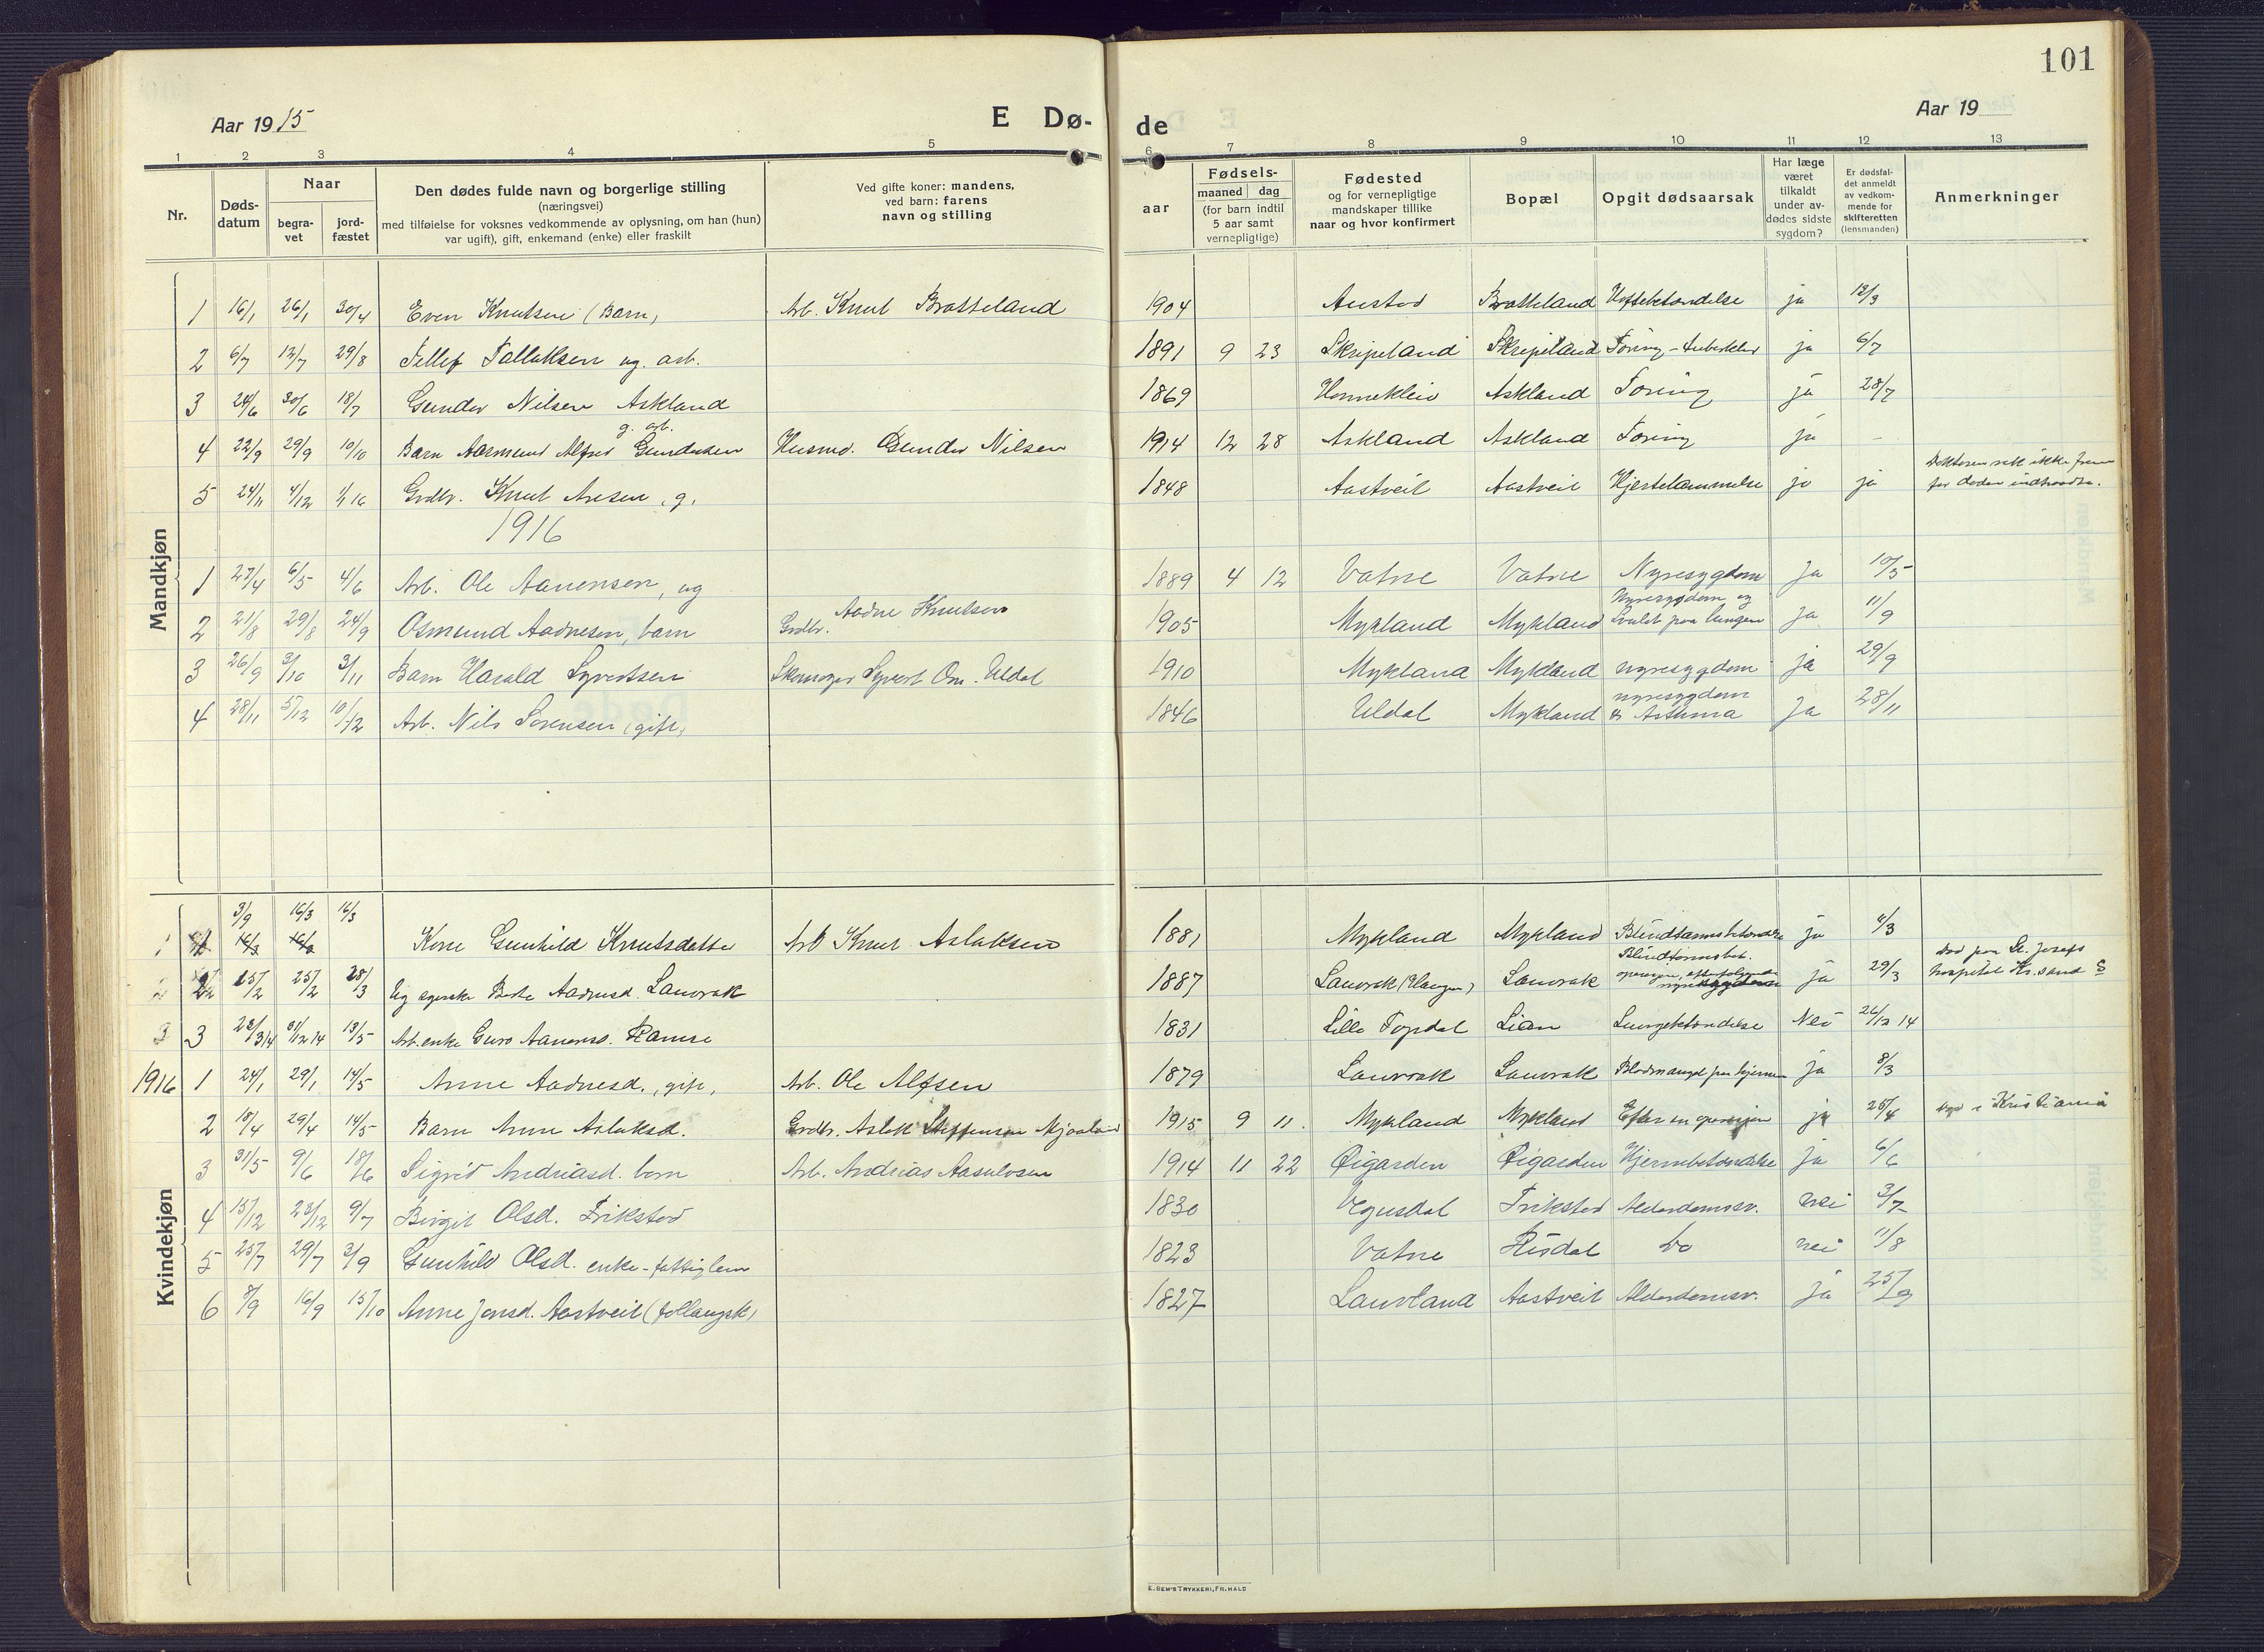 101
Aar 1915
E Dø-
de
Aar 19
1 2 3 4 5 6 7 8 9 10 11 12 13
Nr.
Døds-
datum
Naar
begra-
vet
jord-
fæstet
Den dødes fulde navn og borgerlige stilling
(næringsvei)
med tilføielse for voksnes vedkommende av oplysning, om han (hun)
var ugift), gift, enkemand (enke) eller fraskilt
Ved gifte koner: mandens,
ved barn: farens
navn og stilling
aar
Fødsels-
maaned dag
(for barn indtil
5 aar samt
vernepligtige)
Fødested
og for vernepligtige
mandskaper tillike
naar og hvor konfirmert
Bopæl
Opgit dødsaarsak
Har læge
været
tilkaldt
under av-
dødes sidste
sygdom?
Er dødsfal-
det anmeldt
av vedkom-
mende for
skifteretten
(lensmanden)
Anmerkninger
Mandkjøn
1 16/1 26/1 30/4 Even Knutsen (Barn) Arb. Knut Bratteland 1904 Austad Bratteland Hoftebetændelse ja 12/3
2 6/7 12/7 29/8 Tellef Tallaksen ug. arb. 1891 9 23 Skripeland Skripeland Tæring - tuberkler ja 6/7
3 24/6 30/6 18/7 Gunder Nilsen Askland 1869 Honnekleiv Askland Tæring ja 28/7
g. arb.
4 22/9 29/9 10/10 Barn Aasmund Alfred Gundersen Husmd. Gunder Nilsen 1914 12 28 Askland Askland Tæring ja -
5 24/11 4/12 1/1 16 Grdbr. Knut Aresen, g. 1848 Aastveit Aastveit Hjertelammelse ja ja Doktoren rak ikke frem
før døden indtraadte.
1916
1 27/4 6/5 4/6 Arb. Ole Aanensen, ug 1889 4 12 Vatne Vatne Nyresygdom ja 10/5
2 21/8 29/8 24/9 Osmund Aadnesen, barn Grdbr. Aadne Knutsen 1905 Mykland Mykland Nyresygdom og
Svulst paa lungen ja 11/9
3 26/9 3/10 3/11 Barn Harald Syvertsen Skomager Syvert Om. Uldal 1910 Mykland Mykland nyresygdom ja 29/9
4 28/11 5/12 10/12 Arb. Nils Sørensen (gift) 1846 Uldal Mykland nyresygdom
& Asthma ja 28/11
Kvindekjøn
3/9 16/3 16/3
1 16/3 16/3 Kone Gunhild Knutsdatter Arb Knut Aslaksen 1881 Mykland Mykland Blindtarmsbetændelse ja 4/3
2 15/2 25/2 28/3 Ug Aadnesd. Lauvrak 1887 Lauvrak Lauvrak Blindtarmsbet.
operasjon, efterfølgende
nyresygdom ja 29/3 død paa St. Josefs
hospital Kr.sand S
3 3 23/3 14 31/12 14 13/5 Arb.enke Guro Aanensd. Ramse 1831 Lille Topdal Lian Lungebetændelse Nei 26/12 14
1916 1 24/1 29/1 14/5 Anne Aadnesd., gift, Arb. Ole Alfsen 1879 Lauvrak Lauvrak Blodmangel paa hjernen ja 8/3
2 18/4 29/4 14/5 Barn Anne Aslaksd. Grdbr. Aslak Steffensen Mjaaland 1915 9 11. Mykland Mykland Efter en operasjon ja 25/4 Død i Kristiania
3 31/5 9/6 18/6 Sigrid Andriasd. barn Arb. Andrias Aasulvsen 1914 11 22 Øigarden Øigarden Hjernebetændelse ja 6/6
4 15/12 23/12 9/7 Birgit Olsd. Trikstad 1830 Vegusdal Trikstad Alderdomssv. nei 3/7
5 25/7 29/7 3/9 Gunhild Olsd. enke - fattiglem 1823 Vatne Risdal Do nei 11/8
6 8/9 16/9 15/10 Anne Jensd. Aastveit (follaugsk) 1827 Lauvland Aastveit Alderdomssv. ja 25/9
E. SEM'S TRYKKERI, FR.HALD